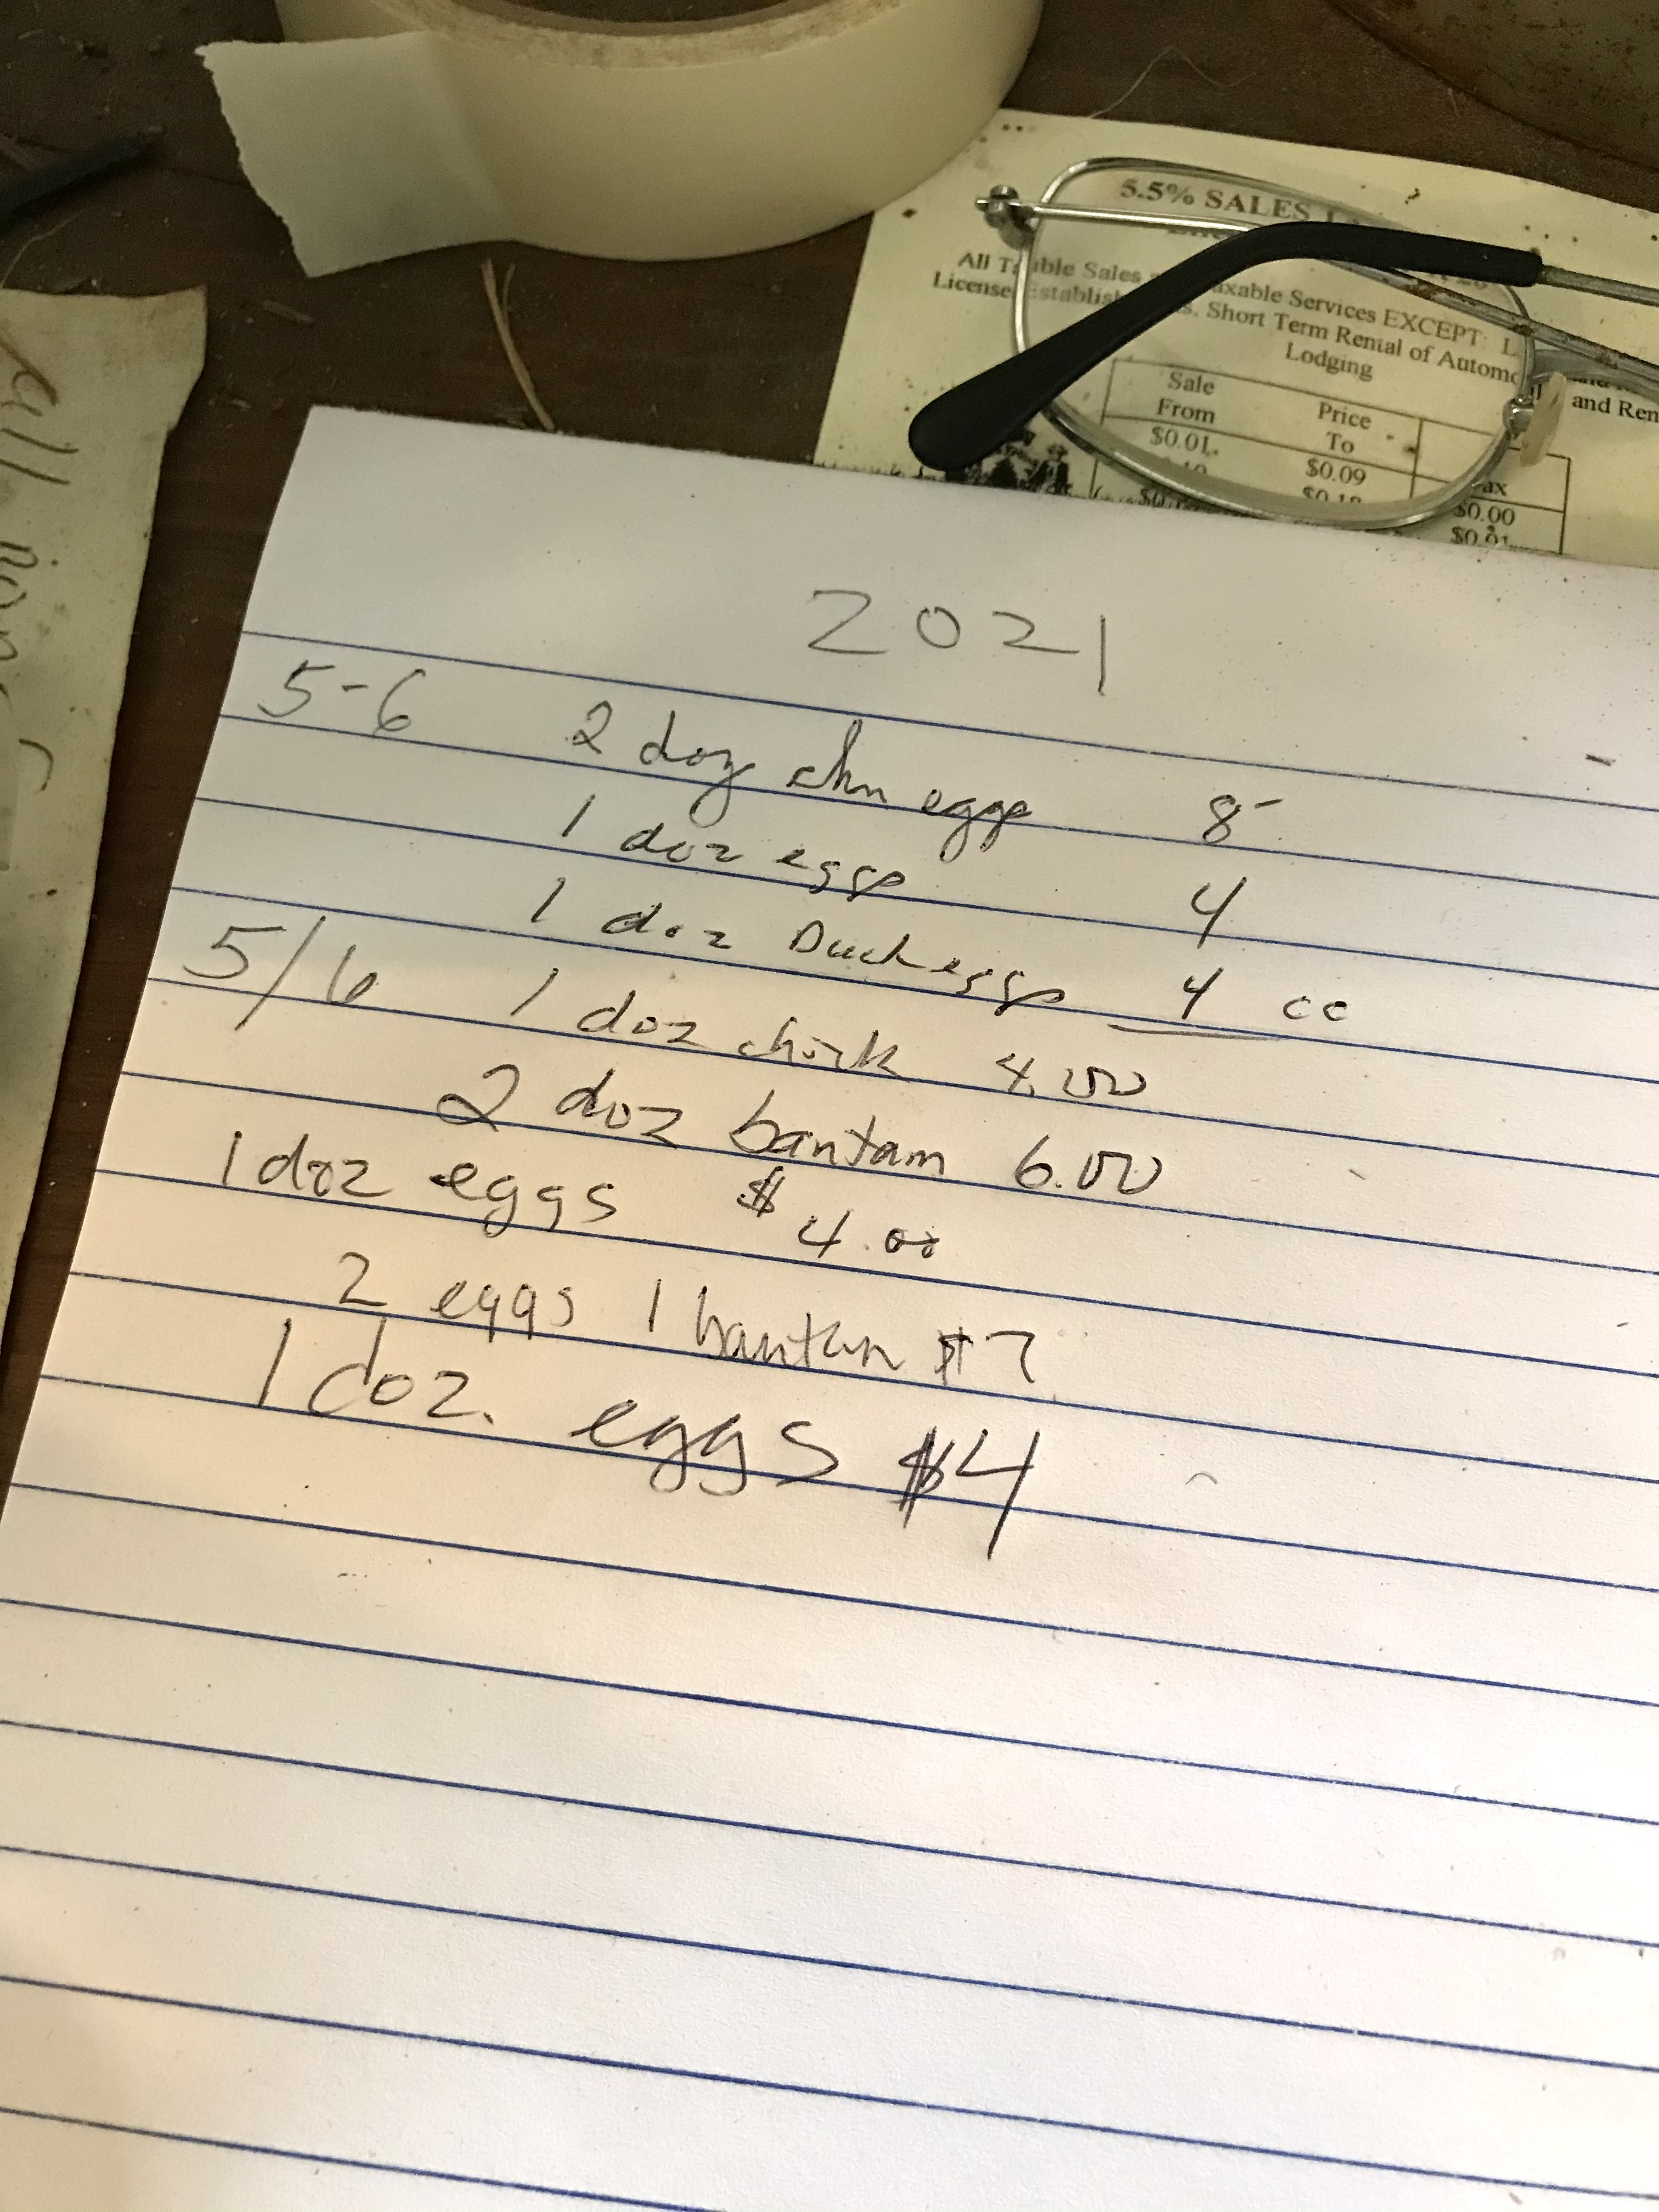 5.5% SALES
All Taxable Sales Taxable Services EXCEPT:
License Establish Short Term Rental of Automo and Ren
Lodging
Sale Price
From To Tax
$0.01 $0.09 $0.00
$0.10 $0.18 $0.01
2021
5-6 2 doz chn eggs 8-
1 doz eggs 4
1 doz Duck eggs 4 cc
5/6 1 doz chick 4.00
2 doz bantam 6.00
1 doz eggs $4.00
2 eggs 1 bantam $7
1 doz. eggs $4